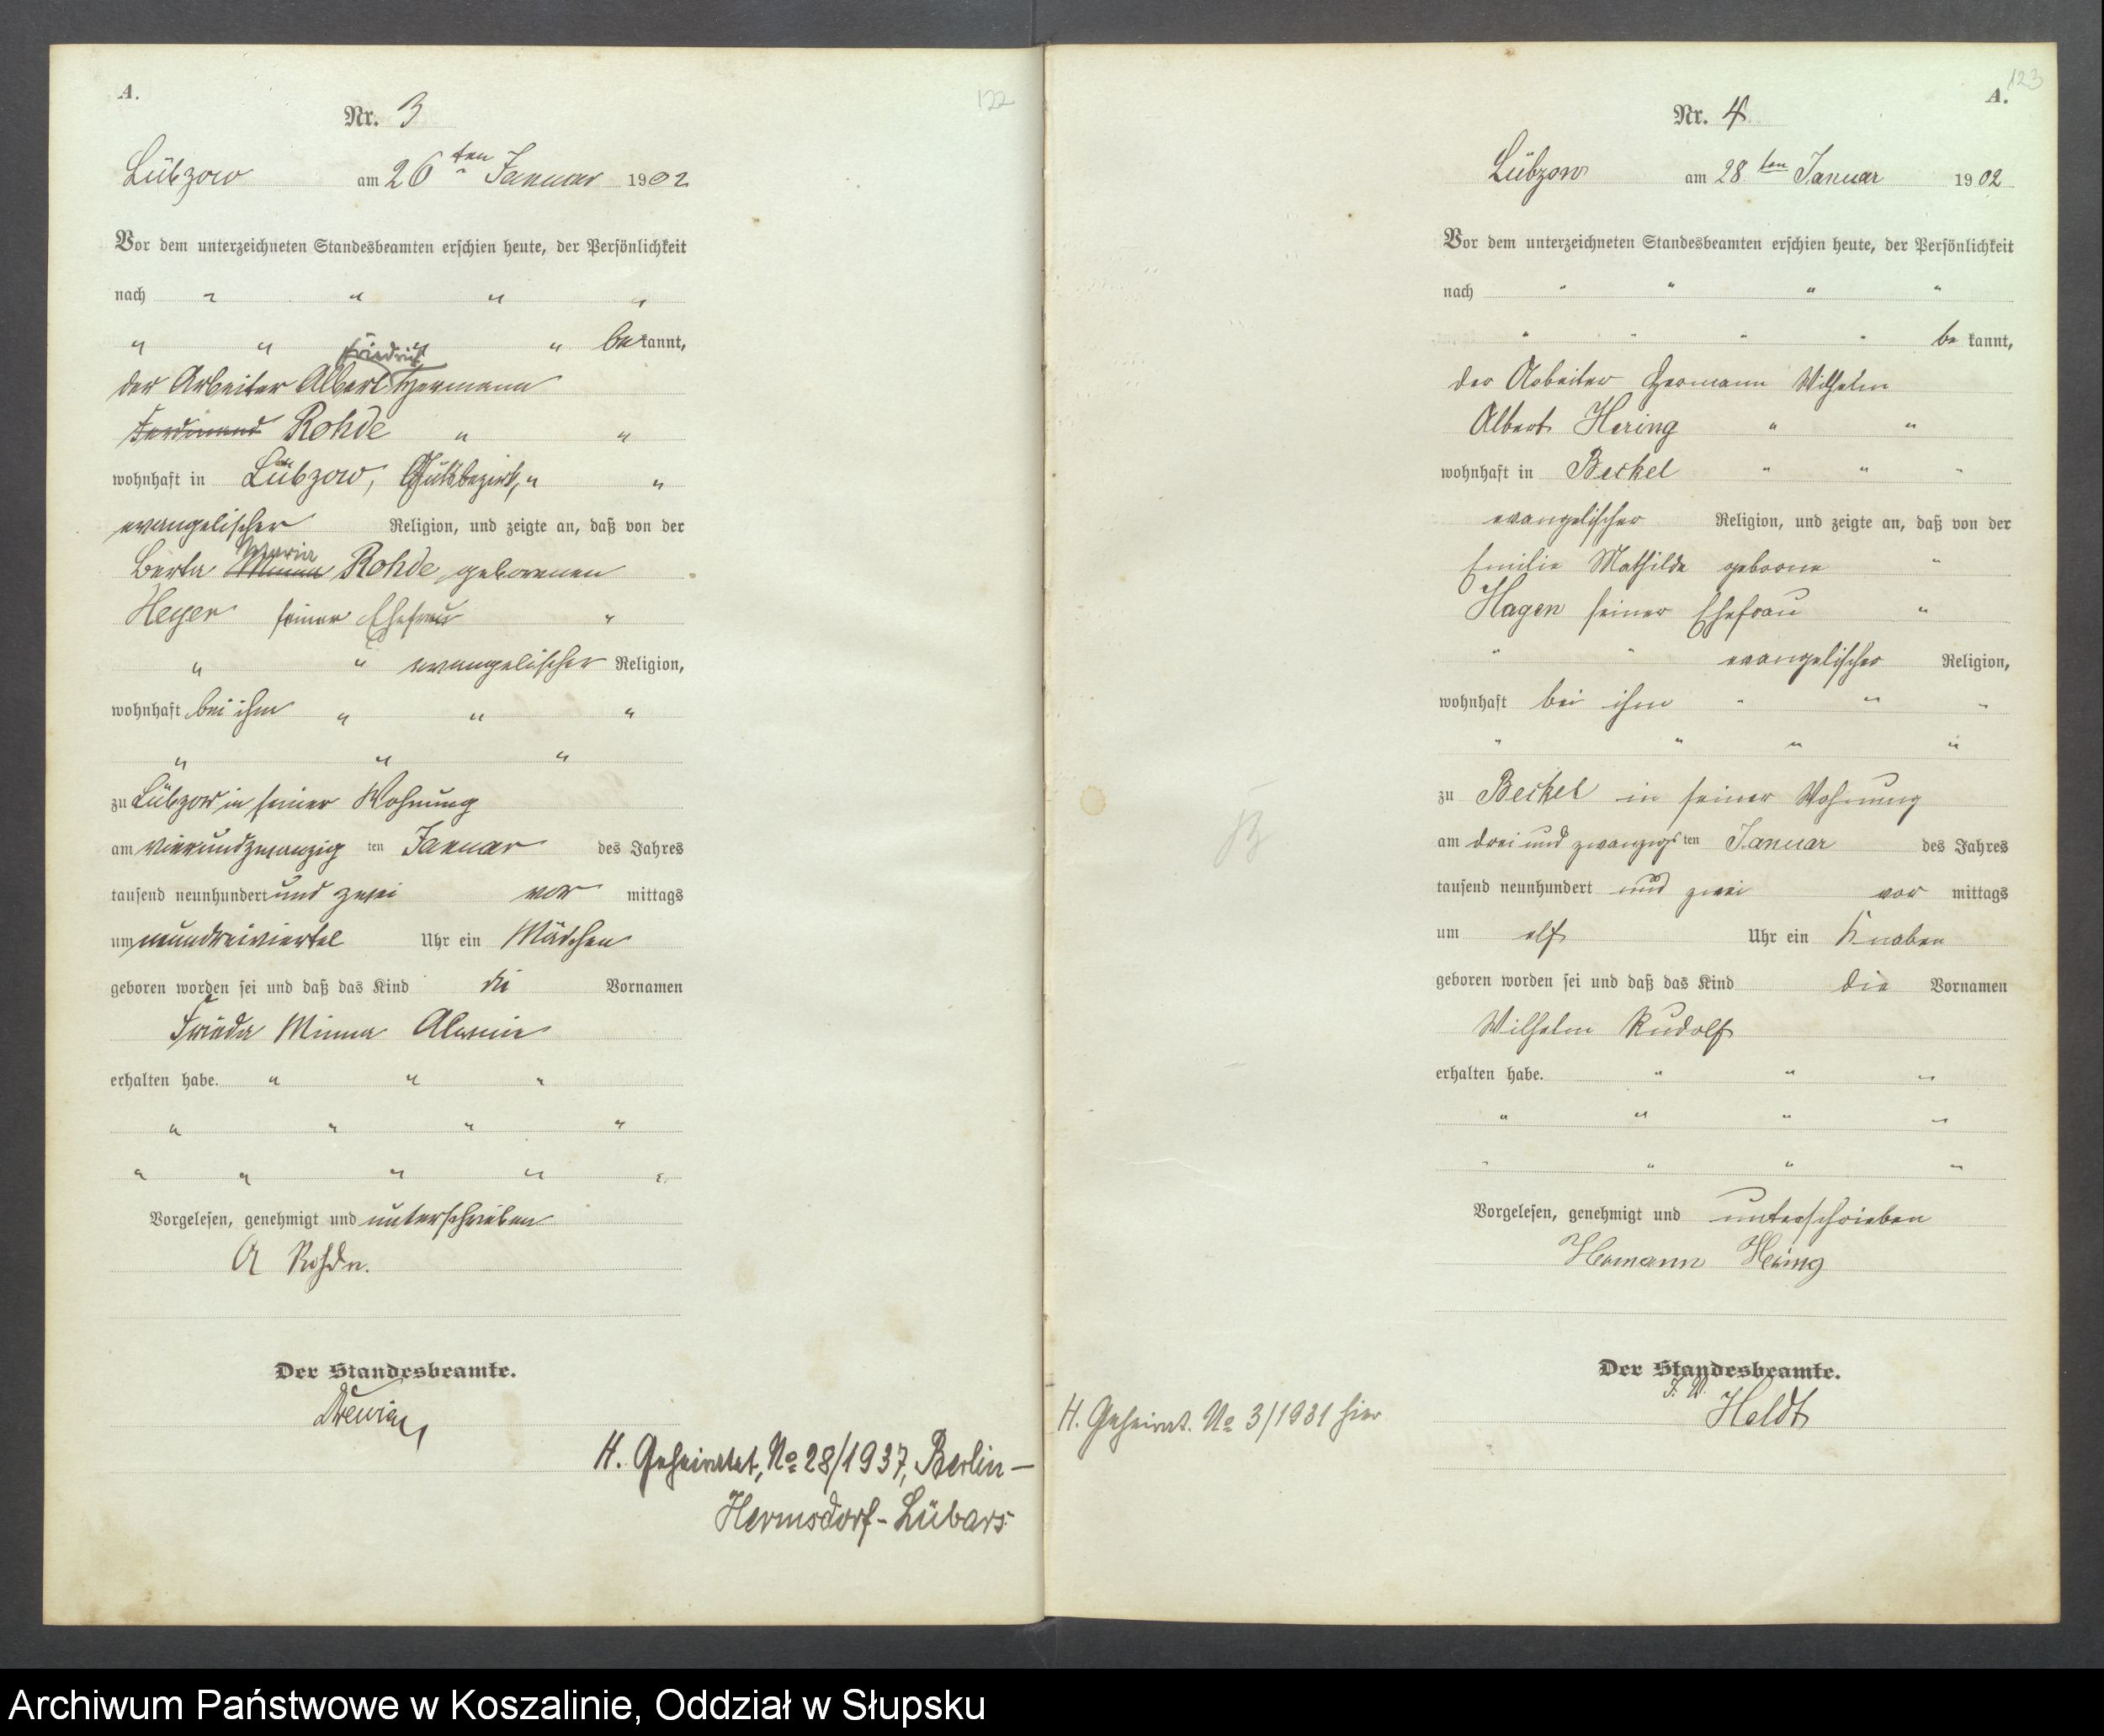 A.
122
Nr. 3
Lübzow am 26ten Januar 1902
Vor dem unterzeichneten Standesbeamten erschien heute, der Persönlichkeit
nach " " " "
" " " " bekannt,
Friedrich
der Arbeiter Albert Hermann
Ferdinand Rohde " "
wohnhaft in Lübzow, Gutsbezirk, " "
evangelischer Religion, und zeigte an, daß von der
Maria
Berta Minna Rohde geborenen
Heyer seiner Ehefrau "
" " evangelischer Religion,
wohnhaft bei ihm " " "
" " "
zu Lübzow in seiner Wohnung
am vierundzwanzig ten Januar des Jahres
tausend neunhundert und zwei vor mittags
um neundreiviertel Uhr ein Mädchen
geboren worden sei und daß das Kind die Vornamen
Frieda Minna Alwine
erhalten habe. " " "
" " " "
" " " " "
Vorgelesen, genehmigt und unterschrieben
A Rohde.
Der Standesbeamte.
H. Geheiratet, No 28/1937, Berlin-
Hermsdorf-Lübars
123
A.
Nr. 4
Lübzow am 28ten Januar 1902
Vor dem unterzeichneten Standesbeamten erschien heute, der Persönlichkeit
nach " " " "
" " " " bekannt,
der Arbeiter Hermann Wilhelm
Albert Hering " "
wohnhaft in Beckel " " "
evangelischer Religion, und zeigte an, daß von der
Emilie Mathilde geborne "
Hagen seiner Ehefrau "
" " evangelischer Religion,
wohnhaft bei ihm " " "
" " " "
zu Beckel in seiner Wohnung
am drei und zwanzigsten Januar des Jahres
tausend neunhundert und zwei vor mittags
um elf Uhr ein Knaben
geboren worden sei und daß das Kind die Vornamen
Wilhelm Rudolf
erhalten habe. " " "
" " " "
" " " "
Vorgelesen, genehmigt und unterschrieben
Hermann Hering
Der Standesbeamte.
Heldt
H. Geheirat. No 3/1931 hier
Archiwum Państwowe w Koszalinie, Oddział w Słupsku